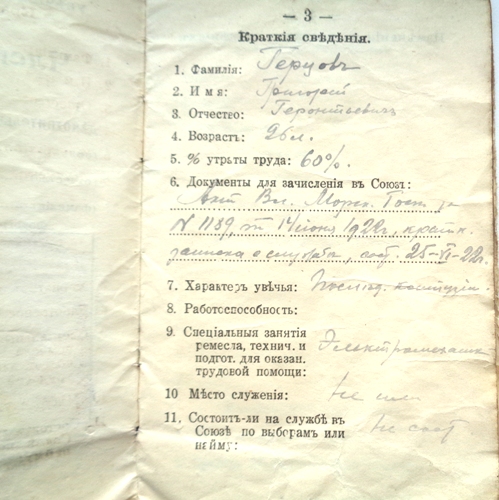 — 3 —
Краткія свѣдѣнія.
1. Фамилія: Герцовъ
2. Имя: Григорій
3. Отчество: Геронтьевичъ
4. Возрастъ: 26 л.
5. % утраты труда: 60%.
6. Документы для зачисленія въ Союзъ:
Актъ Вл. Морск. Госп. за
N 1139, от 14 іюня 1922г, кратк.
записка о службѣ, от 25-VI-22г.
7. Характеръ увѣчья:
8. Работоспособность:
9. Спеціальныя занятія
ремесла, технич. и
подгот. для оказан.
трудовой помощи:
10 Мѣсто служенія: не
11. Состоитъ-ли на службѣ въ
Союзѣ по выборамъ или
найму: не сост